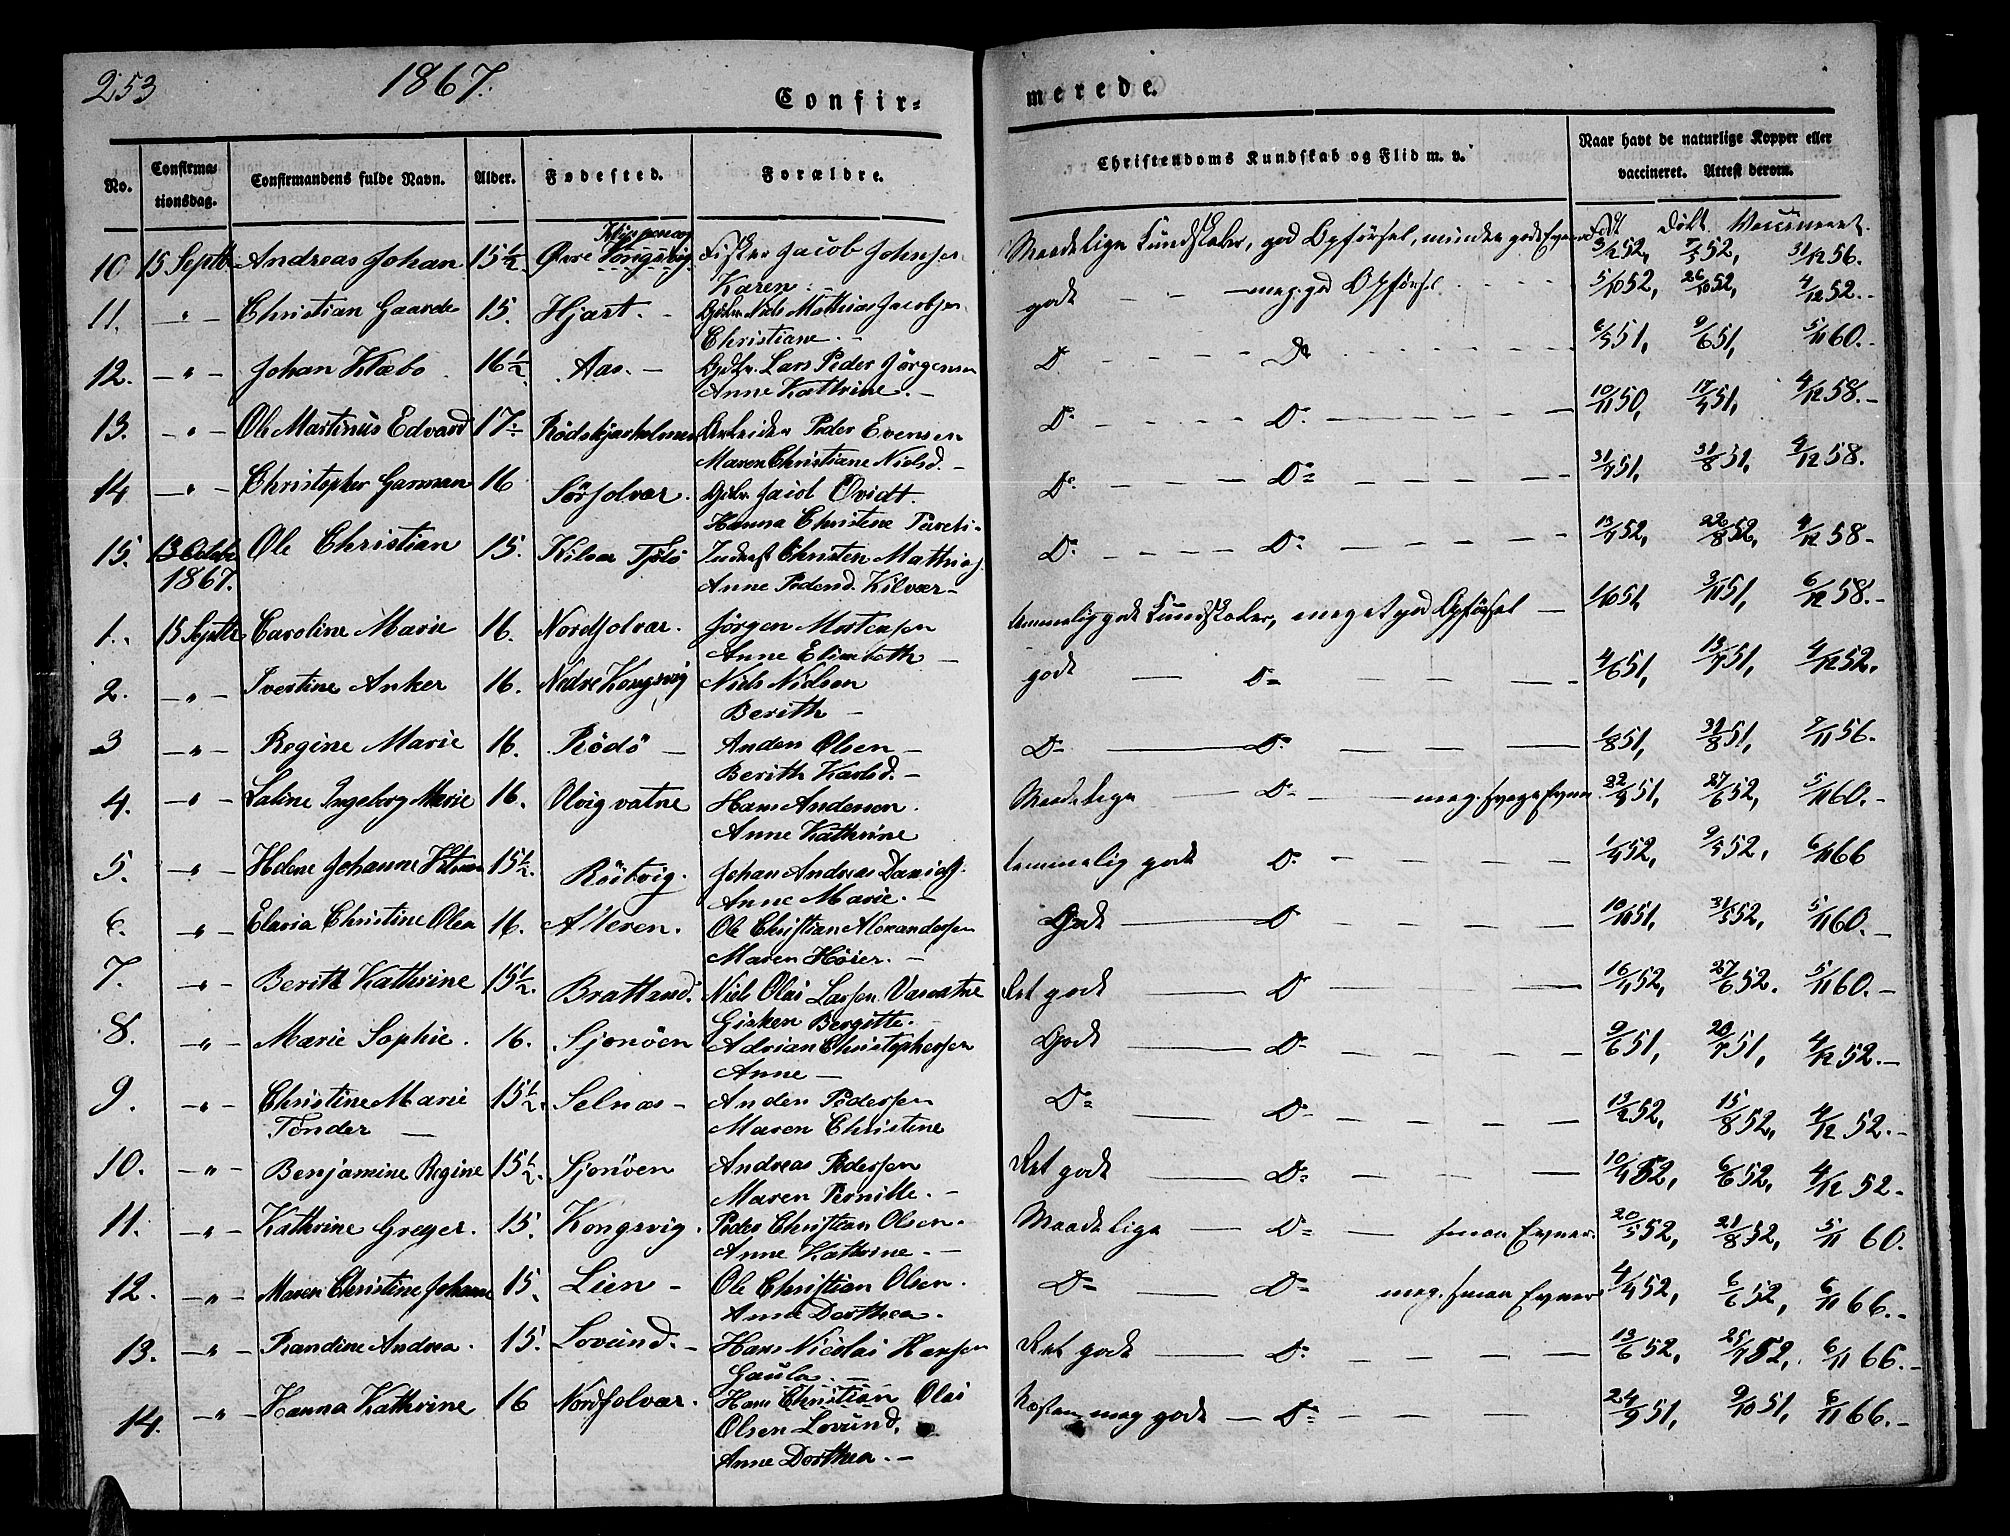 253
1867.
Confir-
merede.
No.
Confirma-
tionsdag.
Confirmandens fulde Navn.
Alder.
Fødested.
Forældre.
Christendoms Kundskab og Flid m. v.
Naar havt de naturlige Kopper eller
vaccineret. Attest derom.
Født Døbt Vaccineret.
10 15 Septb Andreas Johan 15½ Øvre Kongsvig Fisker Jacob Johnsen
Karen. Maadelige Kundskaber, god Opførsel, mindre gode Evner 3/2 52, 7/5 52, 31/12 56.
11. -"- Christian Gaarde 15. Hjart. - Gdbr. Niels Mathias Jacobsen
Christiane. - godt - - meg. god Opførsel 5/10 52, 26/10 52, 4/12 52.-
12. -"- Johan Klæbo 16½ Aas. - Gdbr. Lars Peder Jørgensen
Anne Kathrine. - Do Do 6/5 51, 9/6 51, 5/11 60.-
13. -"- Ole Martinus Edvard 17. Rødskjæholmen Arbeider Peder Evensen
Maren Christiane Nielsd. - Do Do 10/11 50, 17/4 51, 4/12 58.-
14 -"- Christopher Garman 16 Sørsolvær. Gdbr. Jacob Qvidt.
Hanna Christine Do Do 31/7 51, 31/8 51, 4/12 58.
15. 13 Octob
1867. Ole Christian 15. Kilvær Indrest Christen Mathias
Anne Pedersd. Kilvær - Do Do 13/7 52, 22/8 52, 4/12 58-
1. 15 Septb Caroline Marie 16. Nordsolvær. Jørgen Mortensen
Anne Elisabeth - temmelig gode Kundskaber, meget god Opførsel - 1/10 51, 3/11 51, 6/12 58.-
2. -"- Ivertine Anker 16. Nedre Kongsvig Niels Nilsen
Berith - godt - Do 4/6 51, 13/7 51, 4/12 52,
3 -"- Regine Marie 16. Rødø - Anders Olsen -
Berith Karlsd. - Do Do 1/8 51, 31/8 51, 7/11 56.
4. -"- Saline Ingeborg Marie 16. Olvigvatne Hans Anderson.
Anne Kathrine Maadelige - Do - meg. svage Evner. 22/9 51, 27/6 52, 5/11 60.-
5. -"- Helene Johanne 15½. Røitvig. Johan Andreas Davids.
Anne Marie. - temmelig godt Do 1/4 52, 9/5 52, 6/11 66
6. -"- Elaria Christine Olea 16. Alteren. Ole Christian Alexandersen
Maren Høier. - Godt - Do 10/11 51, 31/5 52, 5/11 60.-
7. -"- Berith Kathrine 15½. Bratland. Niels Olai Larsen Varvatne
Gisken Bergitte. - Ret godt - Do 16/1 52, 27/6 52. 5/11 60.-
8. -"- Marie Sophie. 16. Sjonøen Adrian Christophersen
Anne - Godt - Do 9/6 51, 20/7 51, 4/12 52.-
9. -"- Christine Marie
Tønder - 15½. Selnæs - Anders Pedersen
Maren Christine Do - Do 13/2 52, 15/8 52, 4/12 52.-
10. -"- Benjamine Regine 15½. Sjonøen Andreas Pedersen
Maren Pernille. - Ret godt - Do 10/4 52, 6/6 52, 4/12 52-
11. -"- Kathrine Greger. 15. Kongsvig. Peder Christian Olsen.
Anne Kathrine. - Maadelige - Do - smaa Evner. 20/5 52, 21/8 52, 5/11 60.
12. -"- Maren Christine Johanne 15. Lien - Ole Christian Olsen.
Anne Dorthea. - Do Do meg. smaa Evner 4/4 52, 6/6 52, 6/11 66.-
13. -"- Randine Andrea. 15. Lovund. - Hans Nicolai Hansen
Gaula. Ret godt - Do 13/6 52, 25/7 52, 6/11 66.-
14. -"- Hanna Kathrine 16 Nordsolvær. Hans Christian Olai
Olsen Lovund,
Anne Dorthea. - Næsten meg godt - Do 24/9 51, 9/10 51, 6/11 66.-